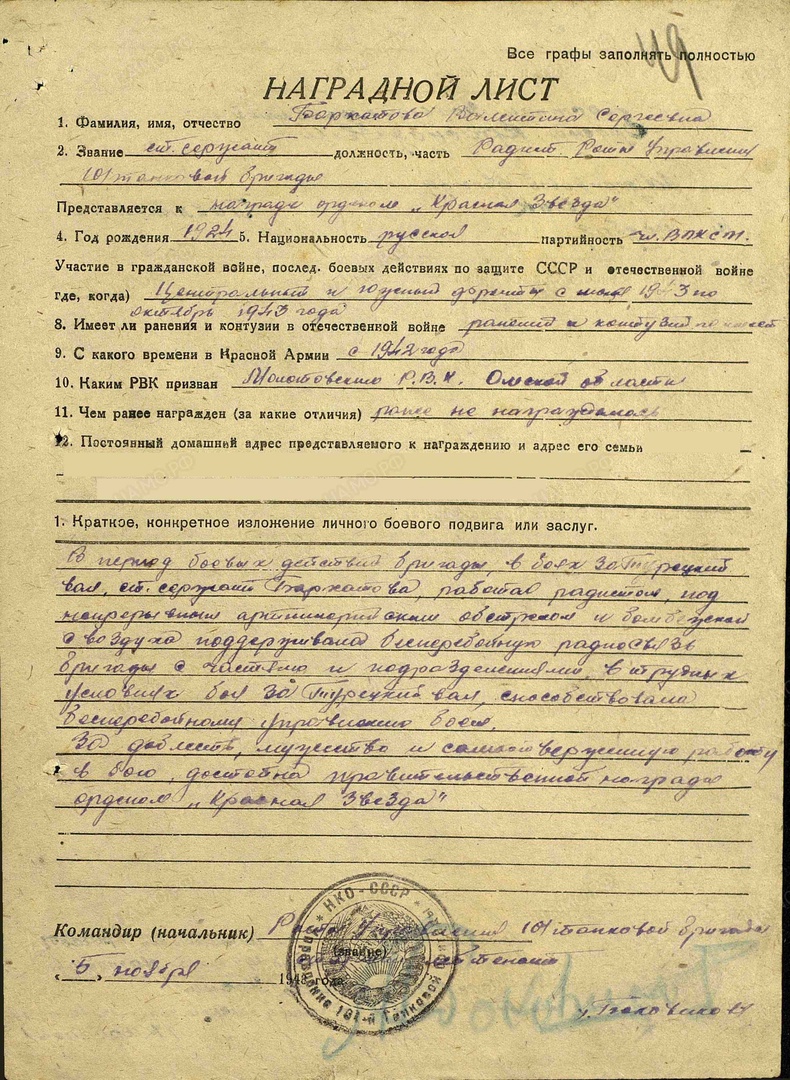 Все графы заполнять полностью
49
НАГРАДНОЙ ЛИСТ
1. Фамилия, имя, отчество Бархатова Валентина Сергеевна
2. Звание ст. сержант должность, часть Радист Роты Управления
101 танковой бригады
Представляется к награде орденом „Красная Звезда"
4. Год рождения 1924 5. Национальность русская партийность чл. ВЛКСМ.
Участие в гражданской войне, послед. боевых действиях по защите СССР и отечественной войне
где, когда) Центральный и южный фронты с 1943 по
октябрь 1943 года
8. Имеет ли ранения и контузии в отечественной войне ранений и контузий не имеет
9. С какого времени в Красной Армии с 1942 года
10. Каким РВК призван Молотовским Р.В.К. Омской области
11. Чем ранее награжден (за какие отличия) ранее не награждалась
12. Постоянный домашний адрес представляемого к награждению и адрес его семьи
1. Краткое, конкретное изложение личного боевого подвига или заслуг.
В период боевых действий бригады, в боях за Турецкий
вал, ст. сержант Бархатова, работая радистом, под
непрерывным артиллерийским обстрелом и бомбежкой
с воздуха поддерживала бесперебойную радиосвязь
бригады с частями и подразделениями, в трудных
условиях боя за Турецкий вал, способствовала
бесперебойному управлению боем.
За доблесть, мужество и самоотверженную работу
в бою, достойна правительственной награды
орденом „Красная Звезда"
Командир (начальник) Роты Управления 101 танковой бригады
(звание) лейтенант
„ 5 " ноября 1943 года
НКО-СССР
Управление 101-й танковой